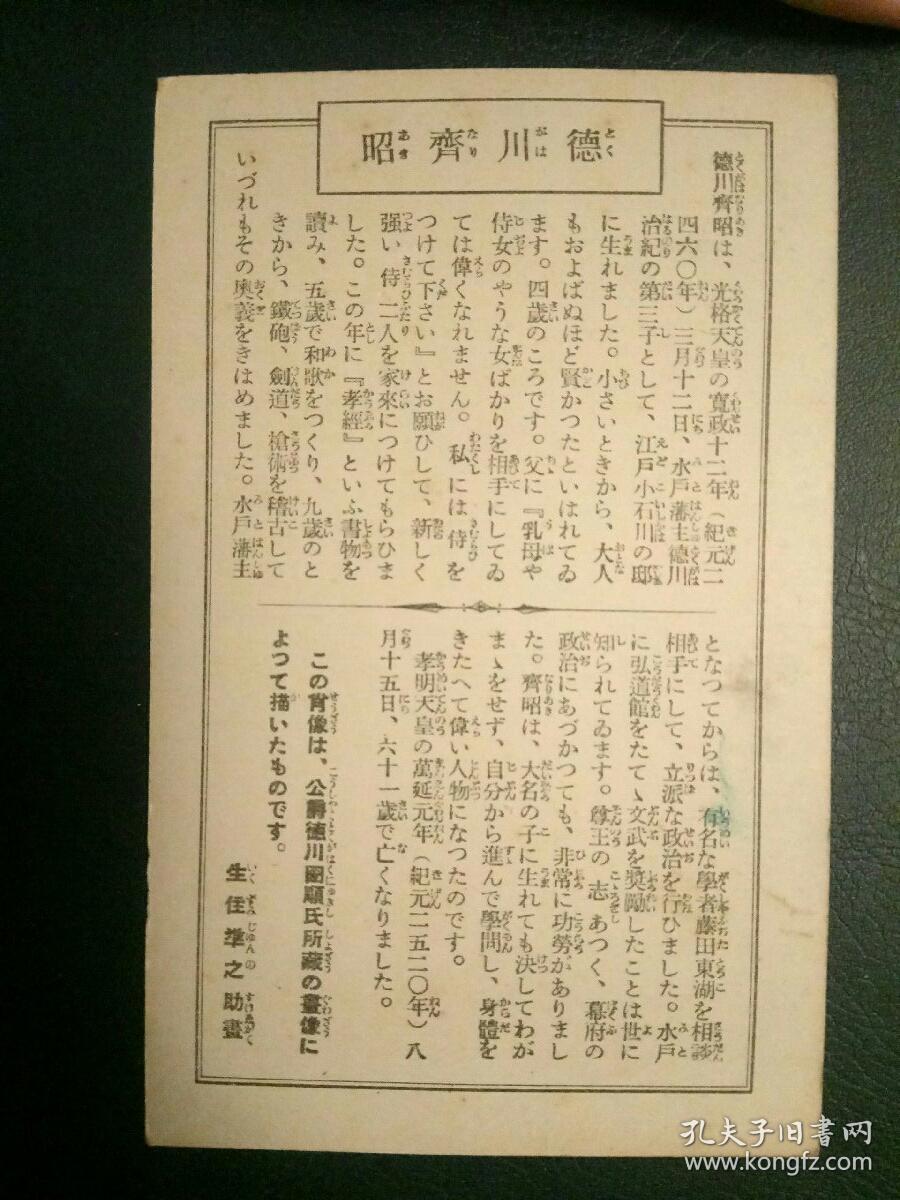 德川齊昭
德川齊昭は、光格天皇の寛政十二年（紀元二
四六〇年）三月十二日、水戸藩主德川
治紀の第三子として、江戸小石川の邸
に生れました。小さいときから、大人
もおよばぬほど賢かつたといはれてゐ
ます。四歳のころです。父に『乳母や
侍女のやうな女ばかりを相手にしてゐ
ては偉くなれません。私には侍を
つけて下さい』とお願ひして、新しく
强い侍二人を家來につけてもらひま
した。この年に『孝經』といふ書物を
讀み、五歳で和歌をつくり、九歳のと
きから、鐵砲、劍道、槍術を稽古して
いづれもその奥義をきはめました。水戸藩主
となつてからは、有名な學者藤田東湖を相談
相手にして、立派な政治を行ひました。水戸
に弘道館をたてゝ文武を奬勵したことは世に
知られてゐます。尊王の志あつく、幕府の
政治にあづかつても、非常に功勞がありまし
た。齊昭は、大名の子に生れても決してわが
まゝをせず、自分から進んで學問し、身體を
きたへて偉い人物になつたのです。
孝明天皇の萬延元年（紀元二五二〇年）八
月十五日、六十一歳で亡くなりました。
この肖像は、公爵德川圀順氏所藏の畫像に
よつて描いたものです。
生住準之助畫
孔夫子旧书网
www.kongfz.com